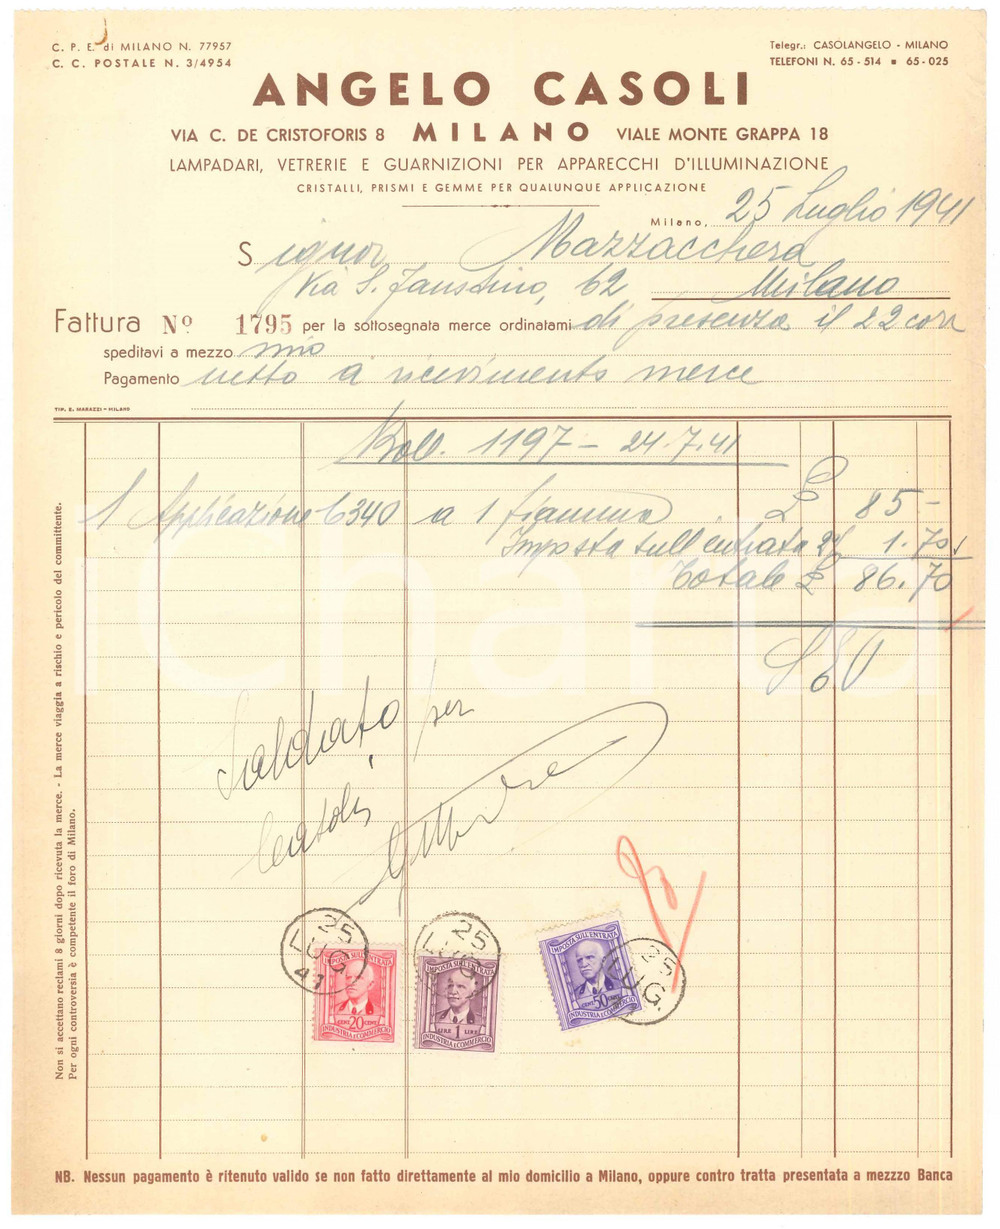 C. P. E. di MILANO N. 77957
C. C. POSTALE N. 3/4954
Telegr.: CASOLANGELO - MILANO
TELEFONI N. 65-514 ▪ 65-025
ANGELO CASOLI
VIA C. DE CRISTOFORIS 8 MILANO VIALE MONTE GRAPPA 18
LAMPADARI, VETRERIE E GUARNIZIONI PER APPARECCHI D'ILLUMINAZIONE
CRISTALLI, PRISMI E GEMME PER QUALUNQUE APPLICAZIONE
Milano, 25 Luglio 1941
Signor Mazzacchera
Via S. Faustino, 62 Milano
Fattura Nº 1795 per la sottosegnata merce ordinatami di presenza il 22 corr
speditavi a mezzo mio
Pagamento netto a ricevimento merce
TIP. E. MARAZZI - MILANO
Boll. 1197 - 24.7.41
1 Applicazione 6340 a 1 fiamma £ 85 -
Imposta sull'entrata 2% 1.70
Totale £ 86.70
iCharta
Saldato per
Casoli
25
LUG
41
IMPOSTA SULL'ENTRATA
CENT 20 CENT
INDUSTRIA E COMMERCIO
25
LUG
IMPOSTA SULL'ENTRATA
LIRE 1 LIRE
INDUSTRIA E COMMERCIO
25
LUG
IMPOSTA SULL'ENTRATA
CENT 50
INDUSTRIA E COMMERCIO
Non si accettano reclami 8 giorni dopo ricevuta la merce. - La merce viaggia a rischio e pericolo del committente.
Per ogni controversia è competente il foro di Milano.
NB. Nessun pagamento è ritenuto valido se non fatto direttamente al mio domicilio a Milano, oppure contro tratta presentata a mezzzo Banca